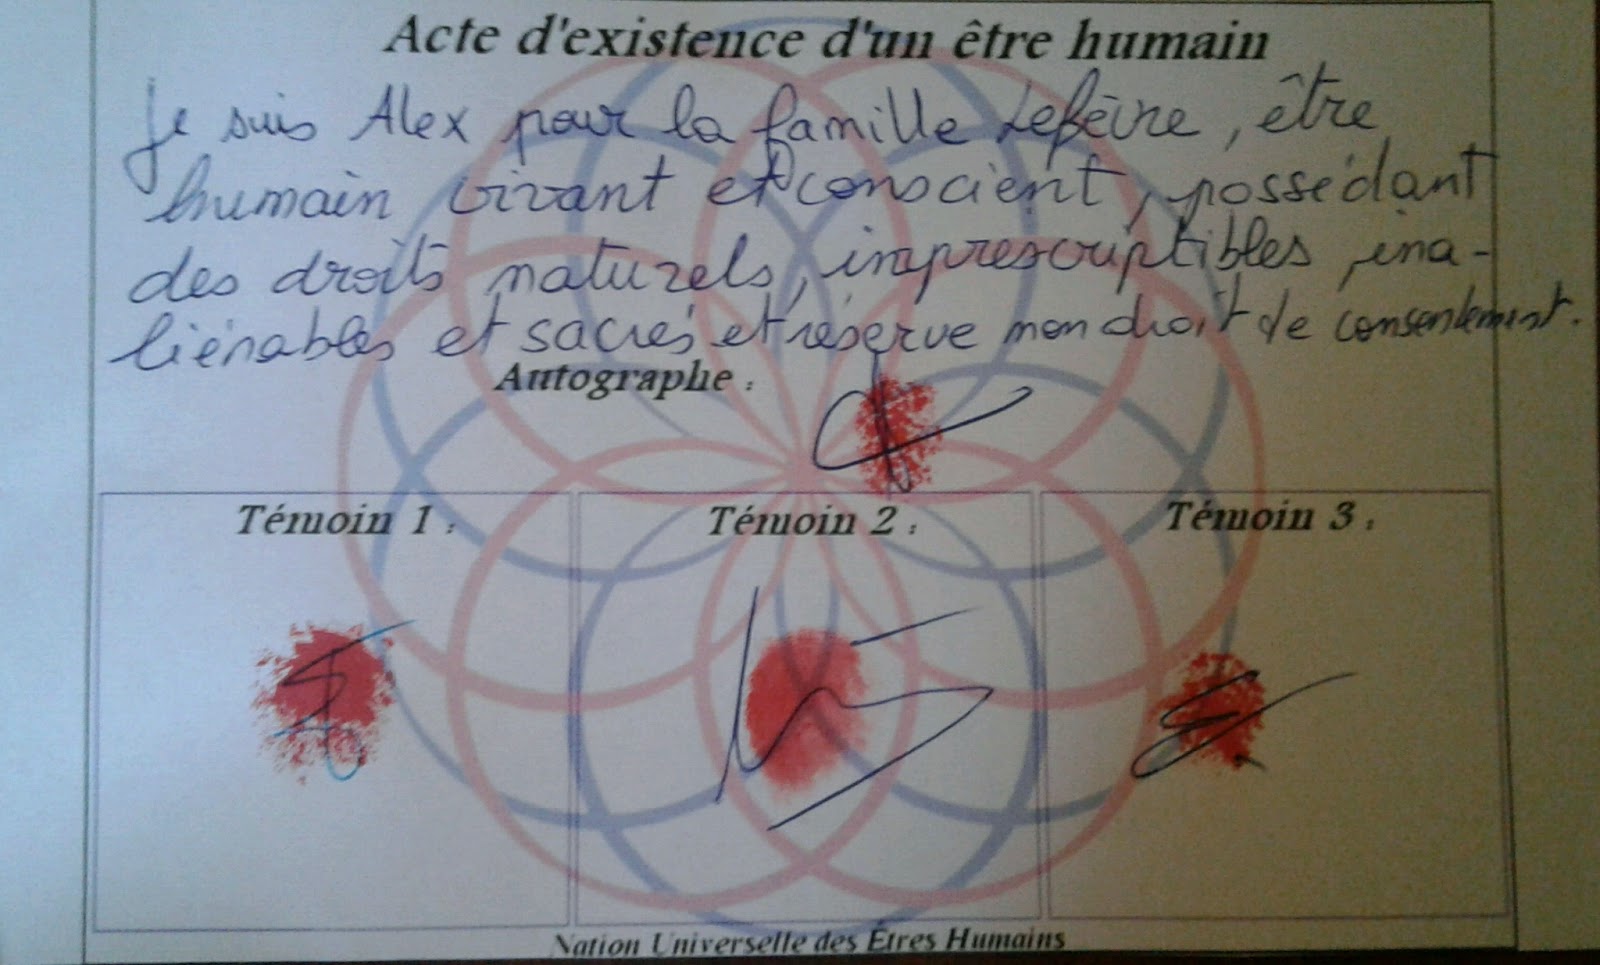 Acte d'existence d'un être humain
Je suis Alex pour la famille Lefèvre, être
humain vivant et conscient, possédant
des droits naturels, imprescriptibles, ina-
liénables et sacrés et réserve mon droit de consentement.
Autographe :
Témoin 1 : Témoin 2 : Témoin 3 :
Nation Universelle des Êtres Humains